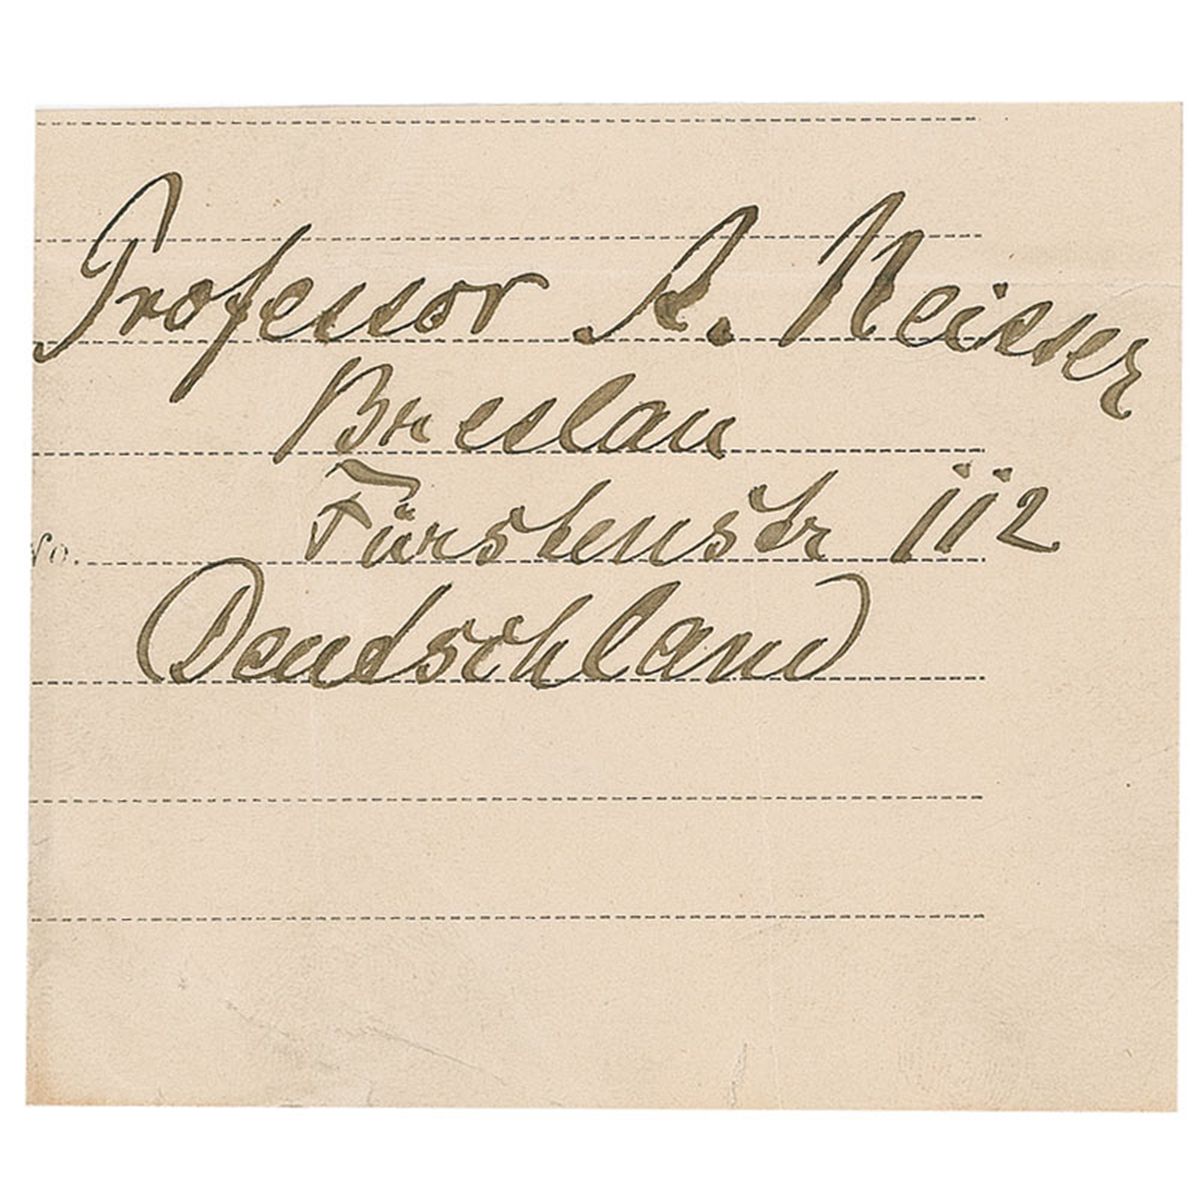 Professor A. Neisser
Breslau
Fürstenstr 112
No.
Deutschland